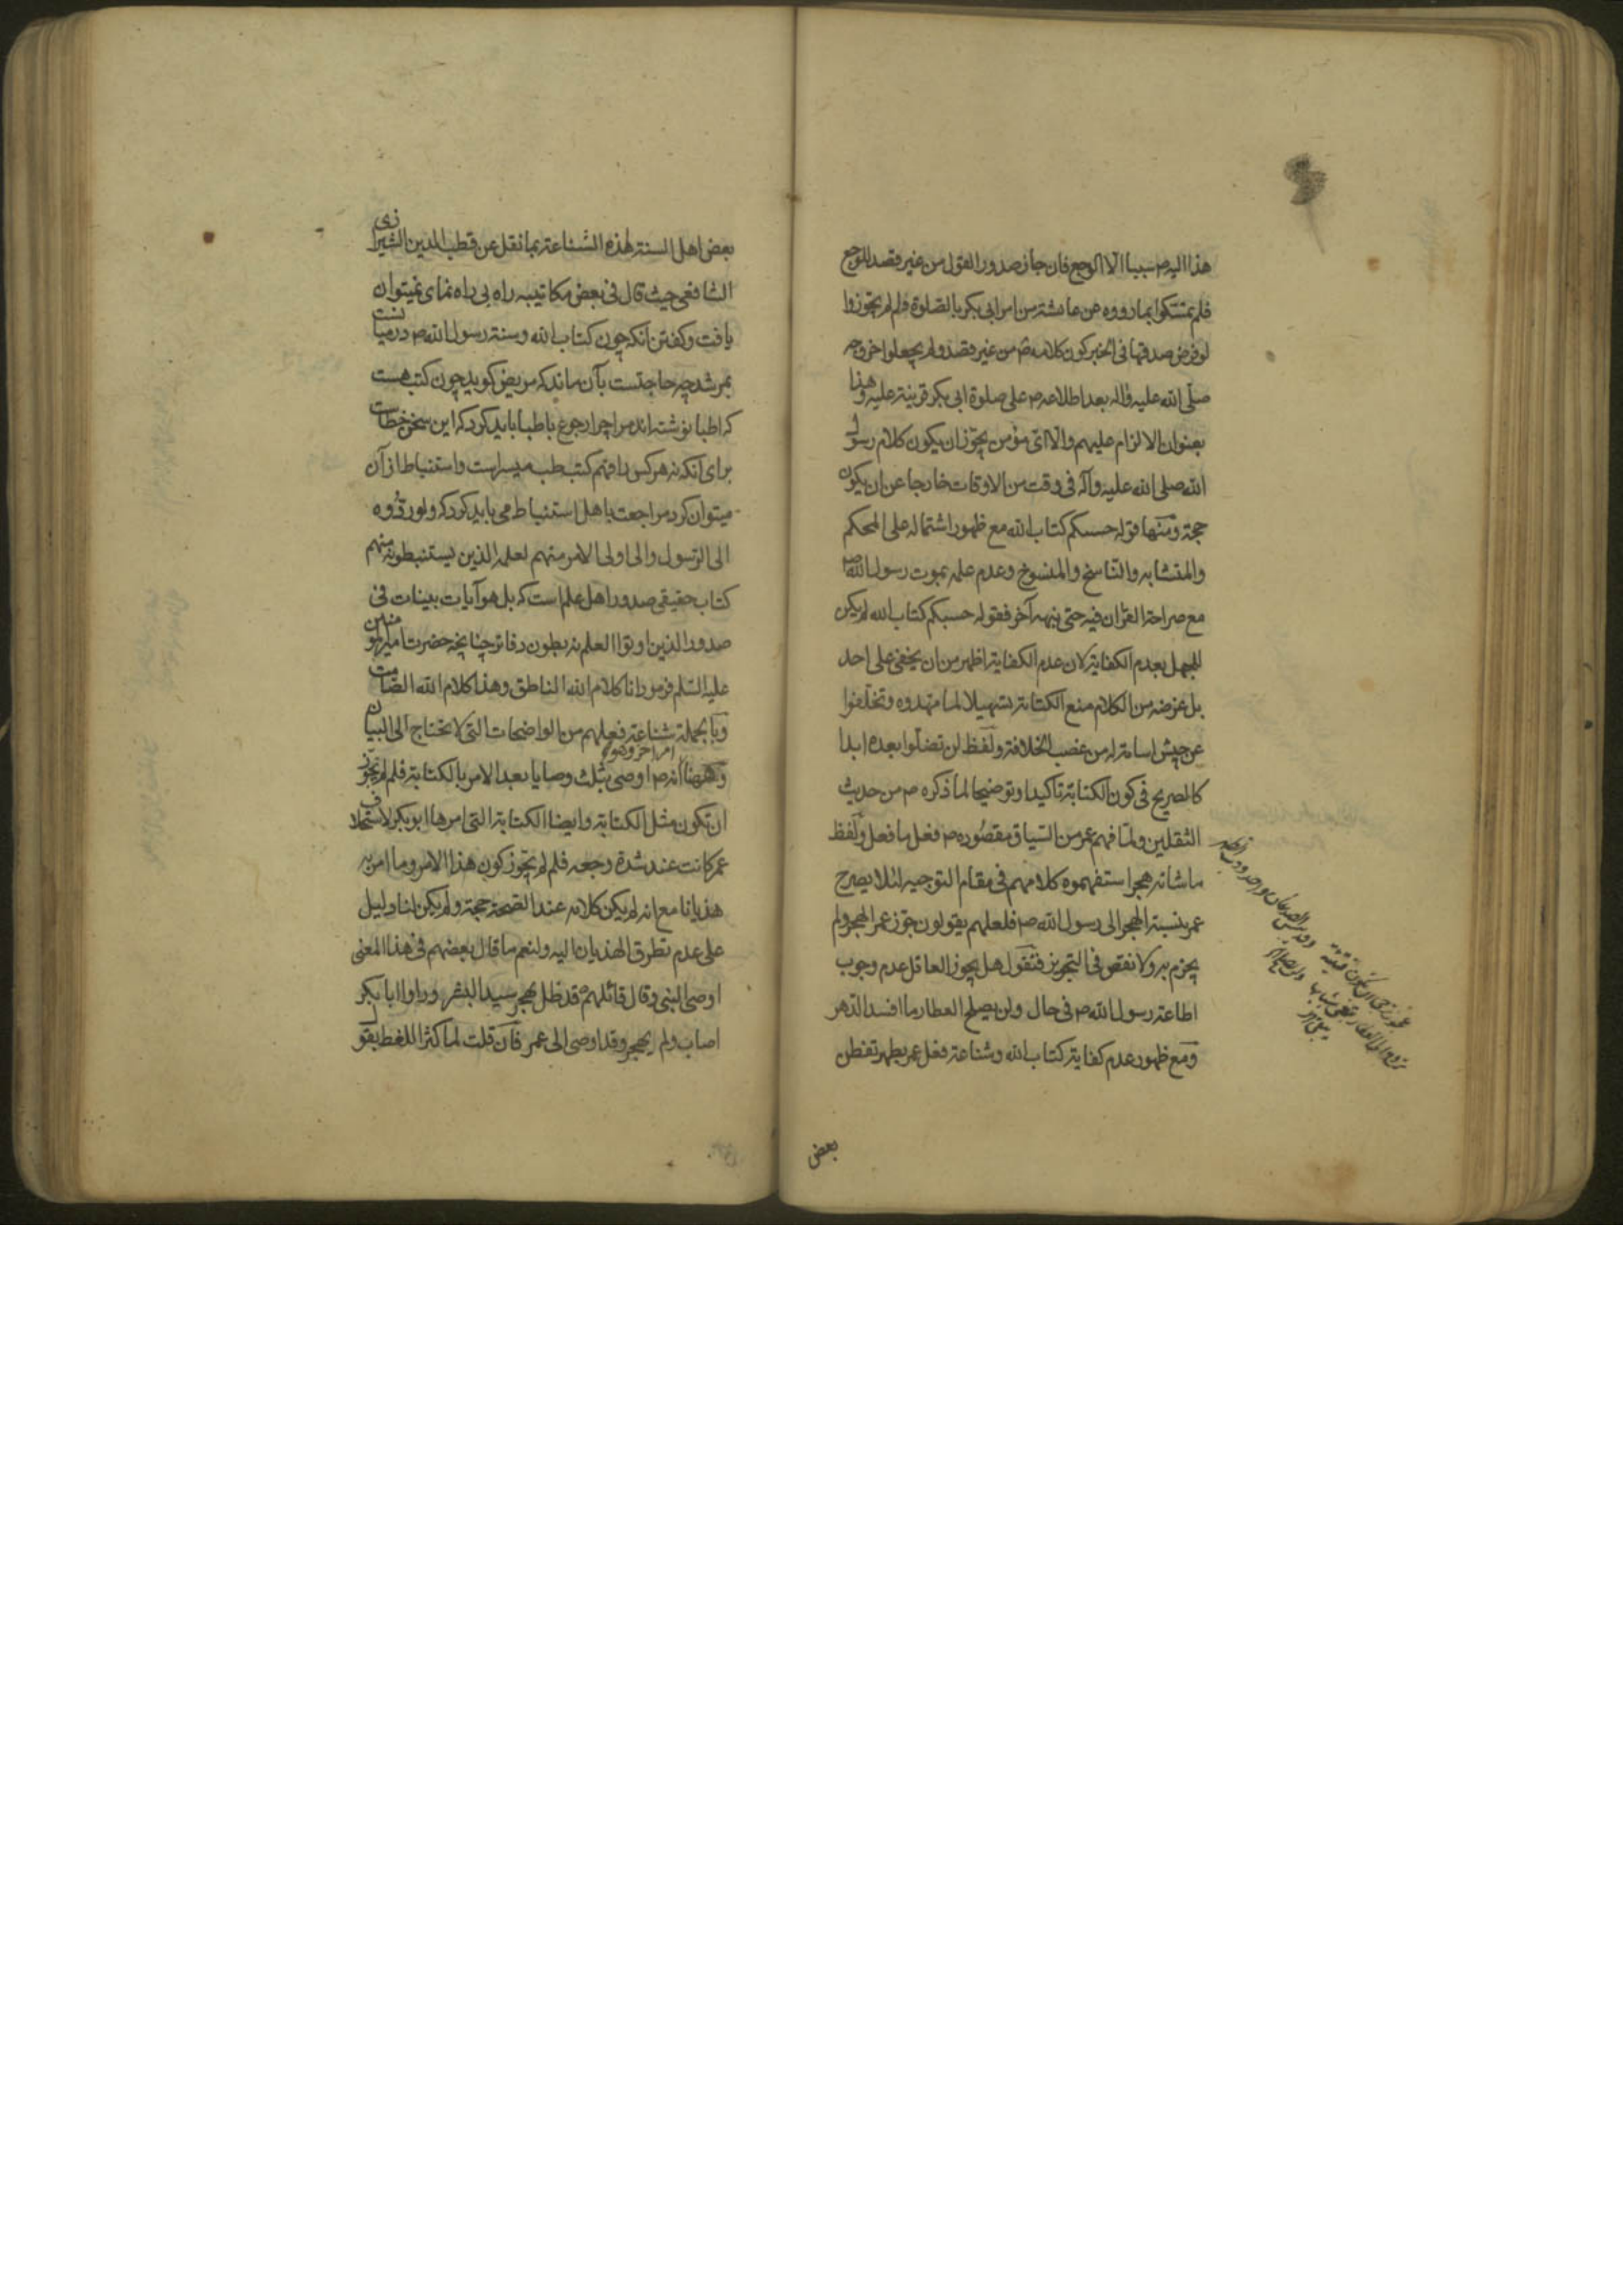 هذا اليه ص سببا الا الوجع فان جاز صدور القول من غير قصد للوجع
فلم تمسكوا بما رووه عن عايشة من امر ابى بكر بالصلوة ولم لم يجوزوا
لو فرض صدقها فى الخبر كون كلامه ص من غير قصد ولم يجعلوا خروجه
صلى الله عليه واله بعد اطلاعه ص على صلوة ابى بكر قرينة عليه وهذا
بعنوان الالزام عليهم والا اى مؤمن يجوز ان يكون كلام رسول
الله صلى الله عليه وآله فى وقت من الاوقات خارجا عن ان يكون
حجة ومنها قوله حسبكم كتاب الله مع ظهور اشتماله على المحكم
والمتشابه والناسخ والمنسوخ وعدم علمه بموت رسول الله ص
مع صراحة القران فيه حتى ينبهه آخر فقوله حسبكم كتاب الله لم يكن
للجهل بعدم الكفاية لان عدم الكفاية اظهر من ان يخفى على احد
بل غرضه من الكلام منع الكتابة تسهيلا لما مهدوه وتخلفوا
عن جيش اسامة له من غصب الخلافة ولفظ لن تضلوا بعده ابدا
كالصريح فى كون الكتابة تاكيدا وتوضيحا لما ذكره ص من حديث
الثقلين ولما فهم عمر من السياق مقصوده ص فعل ما فعل ولفظ
ما شانه هجر استفهموه كلامهم فى مقام التوجيه لئلا يصرح
عمر بنسبة الهجر الى رسول الله ص فلعلهم يقولون جوز عمر الهجر ولم
يجزم به ولا نقص فى التجويز فنقول هل يجوز العاقل عدم وجوب
اطاعة رسول الله ص فى حال ولن يصلح العطار ما افسد الدهر
ومع ظهور عدم كفاية كتاب الله وشناعة فعل عمر يظهر تفطن
بعض
عجوز ترجى ان تكون فتية
وقد
تروح الى العطار تبغى شبابها
ولن يصلح
بعض اهل السنة لهذه الشناعة بما نقل عن قطب الدين الشيرازى
الشافعى حيث قال فى بعض مكاتيبه راه بى راه نماى نميتوان
يافت وكفتن آنكه چون كتاب الله وسنة رسول الله ص درميانست
بمرشد چه حاجتست بآن ماند كه مريض كويد چون كتب هست
كه اطبا نوشته اند مرا چرا رجوع باطبا بايد كرد كه اين سخن خطاست
براى آنكه نه هركس را فهم كتب طب ميسر است واستنباط از آن
ميتوان كرد مراجعت باهل استنباط مى بايد كرد كه ولو ردوه
الى الرسول والى اولى الامر منهم لعلمه الذين يستنبطونه منهم
كتاب حقيقى صدور اهل علم است كه بل هو آيات بينات فى
صدور الذين اوتوا العلم نه بطون دفاتر چنانچه حضرت امير المؤمنين
عليه السلم فرمود انا كلام الله الناطق وهذا كلام الله الصامت
وبالجملة شناعة فعلهم من الواضحات التى لا تحتاج الى البيان
وههنا امر اخر وهو انه ص اوصى بثلث وصايا بعد الامر بالكتابة فلم لم يجوز
ان تكون مثل الكتابة وايضا الكتابة التى امرها ابو بكر لاستخلاف
عمر كانت عند شدة وجعه فلم لم يجوز كون هذا الامر وما امر به
هذيانا مع انه لم يكن كلامه عند الصحة حجة ولم يكن لنا دليل
على عدم تطرق الهذيان اليه ولنعم ما قال بعضهم فى هذا المعنى
اوصى النبى وقال قائلهم قد ظل يهجر سيد البشر وراوا ابا بكر
اصاب ولم يهجر وقد اوصى الى عمر فان قلت لما كثر اللغط بقول